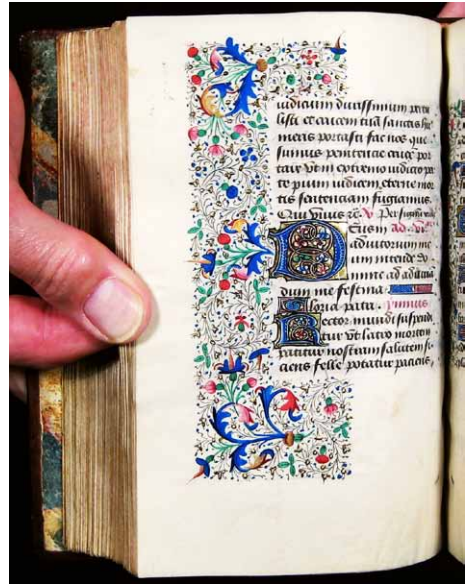 iudicium durissimum pertu
listi et crucem tuā sanctis hu
meris portasti fac nos que
sumus penitencie crucē por
tare vt in extremo iudicio pa
te pium iudicem eterne mor
tis sentenciam fugiamus.
Qui viuis ꝛc̄. V Per signū
Eus in ad vi
adiutorium me
um intende Do
mine ad adiuuā
dum me festina.
Gloria patri. ymnus.
Rector mundi suspendi
tur vt latro mortem
patitur nostram salutem si
ciens felle potatur paciens,